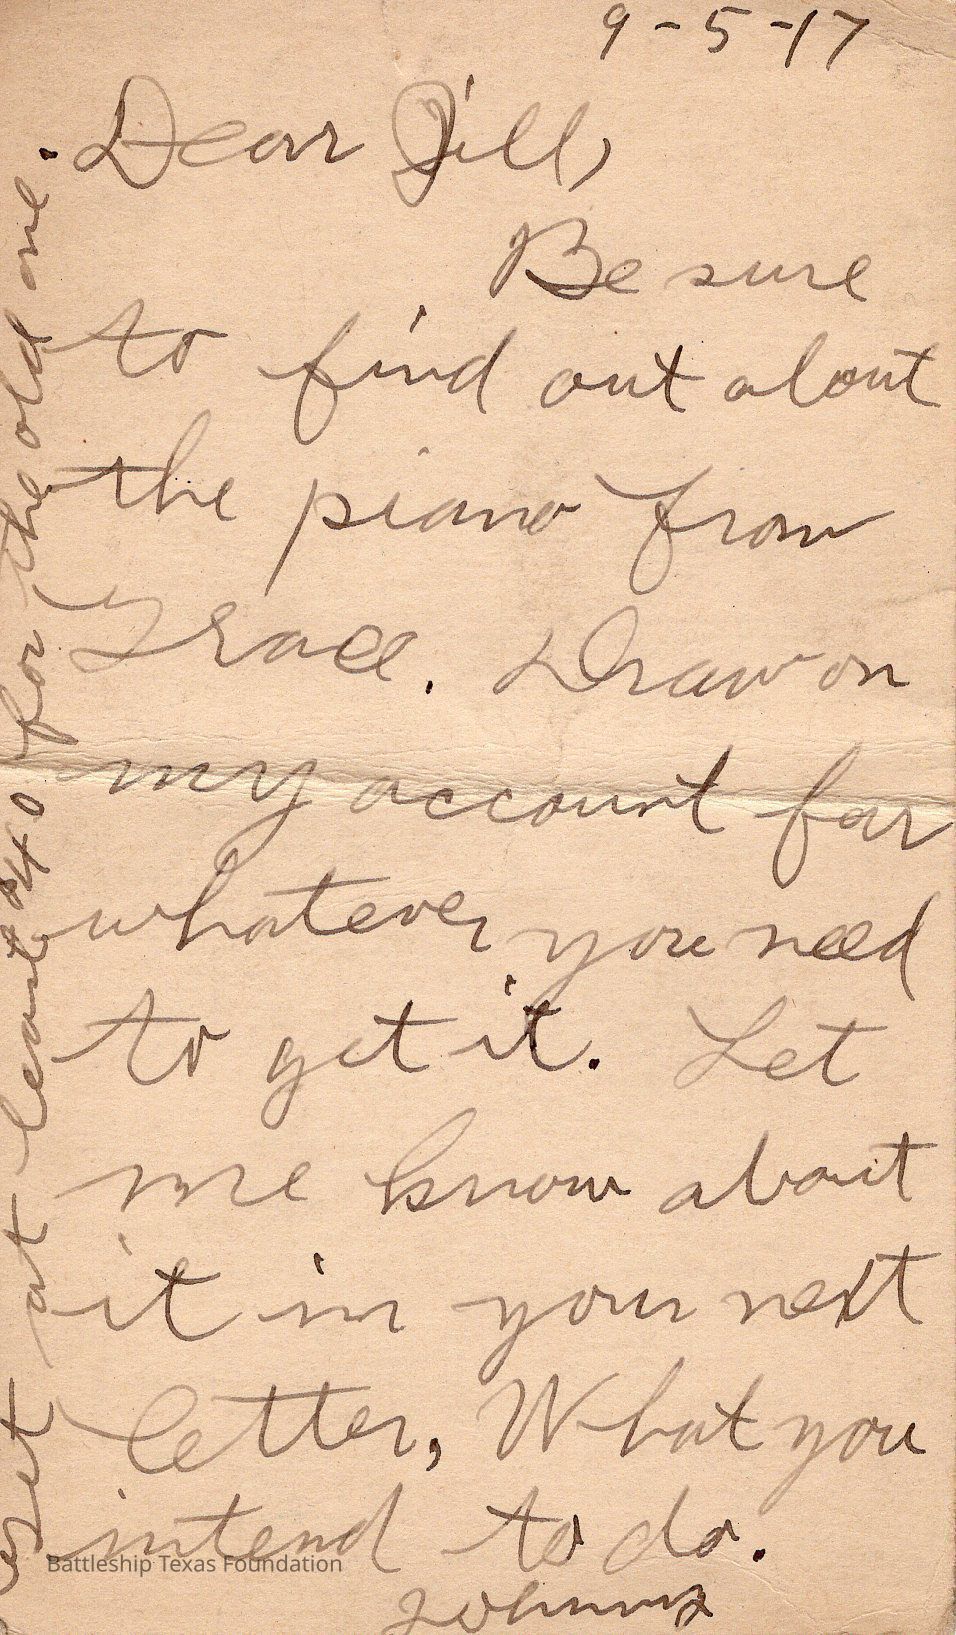 9-5-17
Dear Jill,
Be sure
to find out about
the piano from
Grace. Draw on
my account for
whatever you need
to get it. Let
me know about
it in your next
letter, What you
intend to do.
Johnny
get at least $40 for the old one.
Battleship Texas Foundation